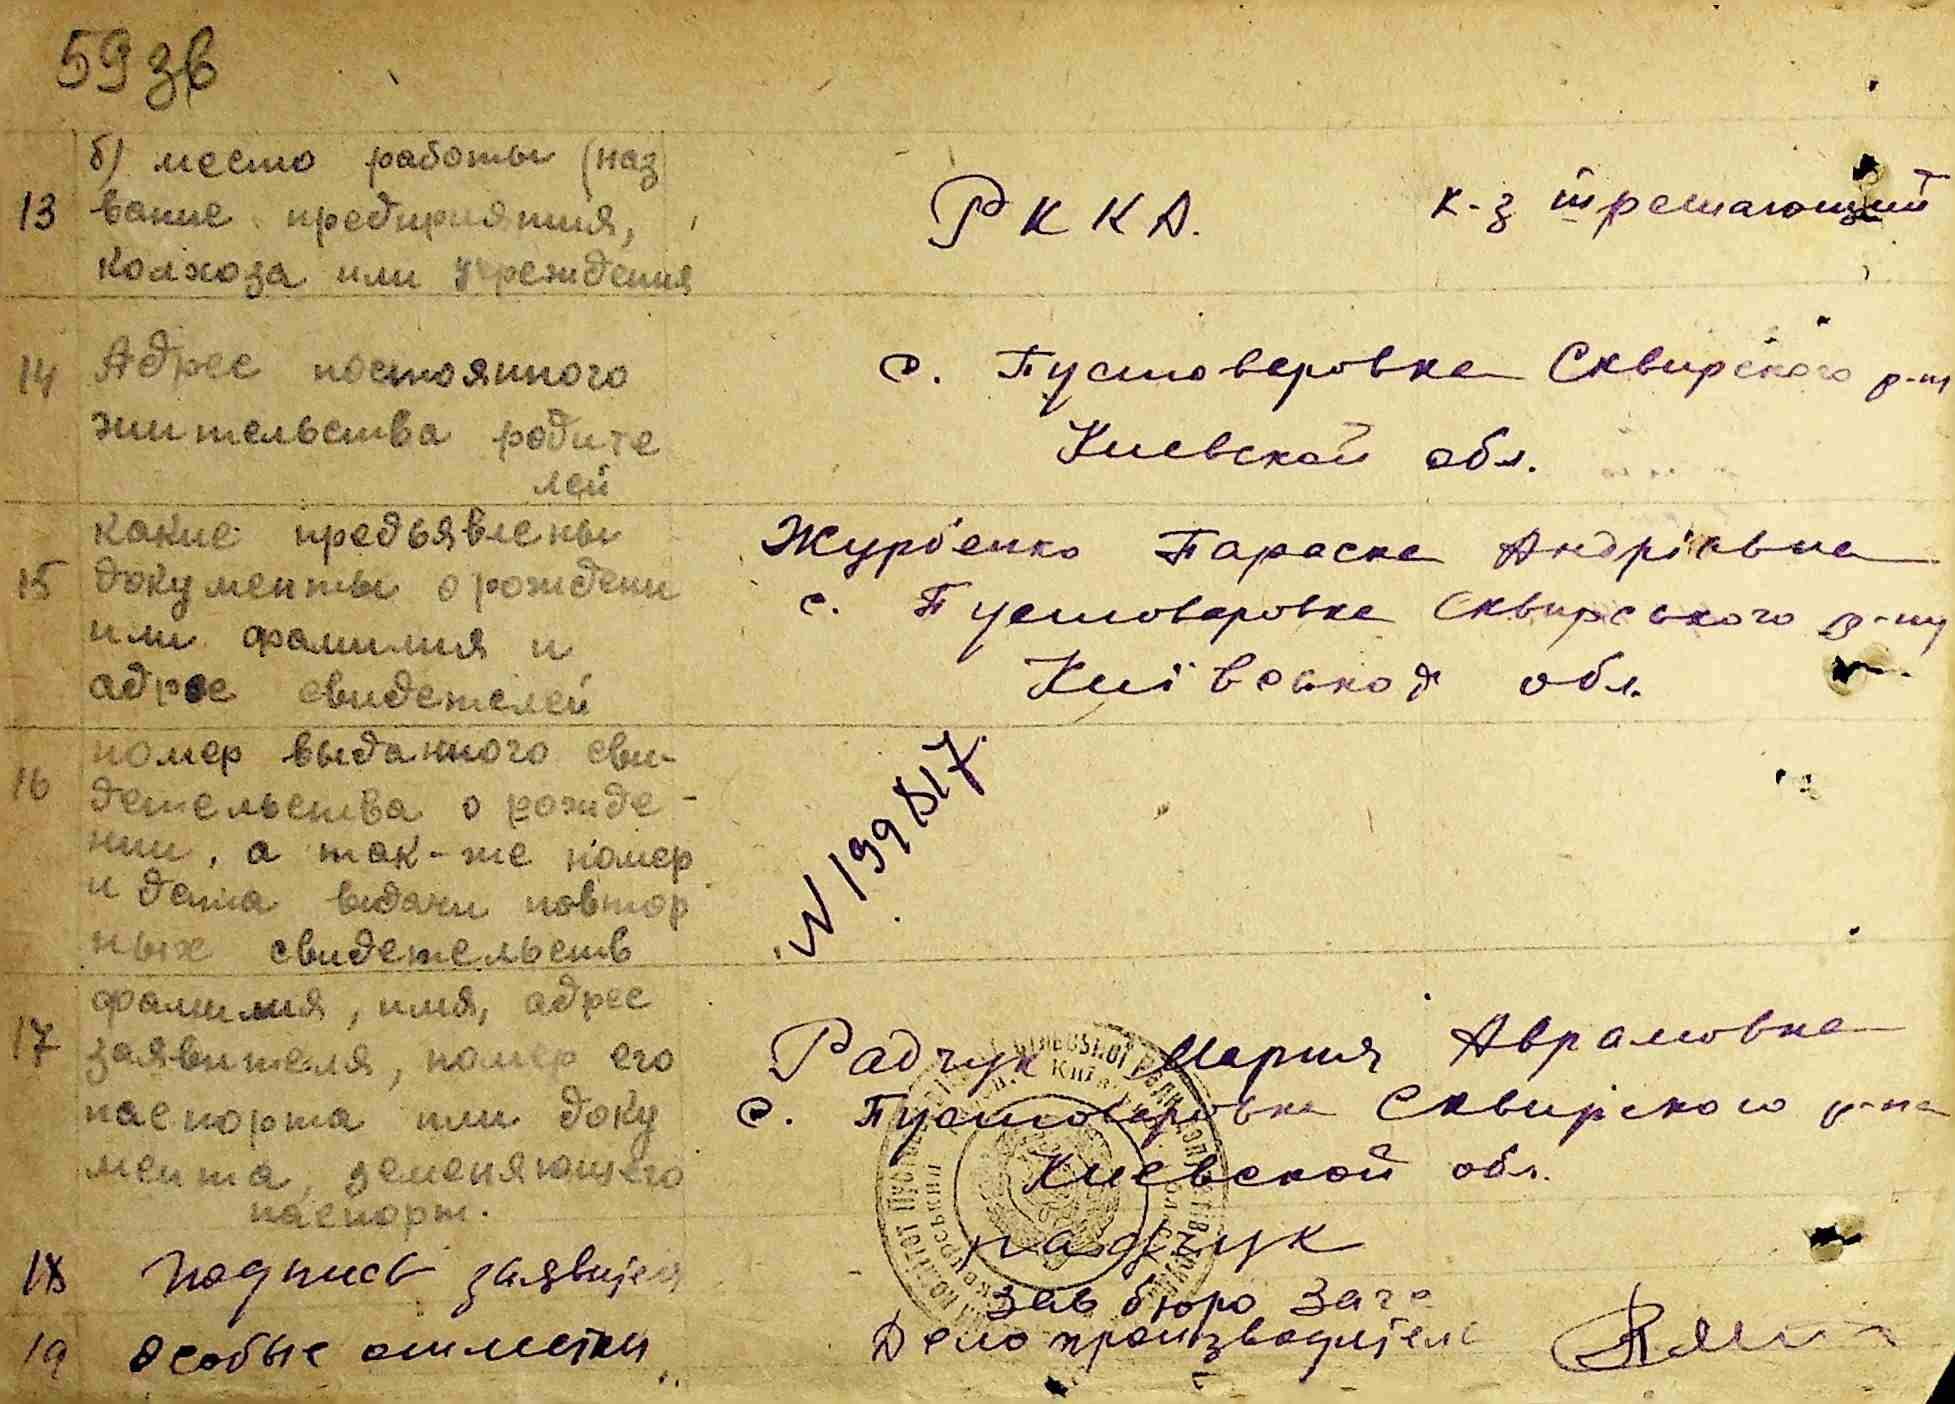 59 зв
б) место работы (наз
13 вание предприятия, РККА. к-з
колхоза или учреждения
14 Адрес постоянного с. Пустоваровка Сквирского р-на
жительства родите Киевской обл.
лей
какие предъявлены Журбенко Параска Андріївна
15 документы о рождении с. Пустоваровка Сквирського р-ну
или фамилия и
адрес свидетелей Київської обл.
16 номер выданного сви-
детельства о рожде-
нии, а так-же номер N 199817.
и дата выдачи повтор
ных свидетельств
фамилия, имя, адрес
17 заявителя, номер его Радчук Мария Аврамовна
паспорта или доку с. Пустоваровка Сквирского р-на
мента, заменяющего Киевской обл.
паспорт.
18 Подпись заявителя Радчук
зав бюро загс
19 Особые отметки Делопроизводитель